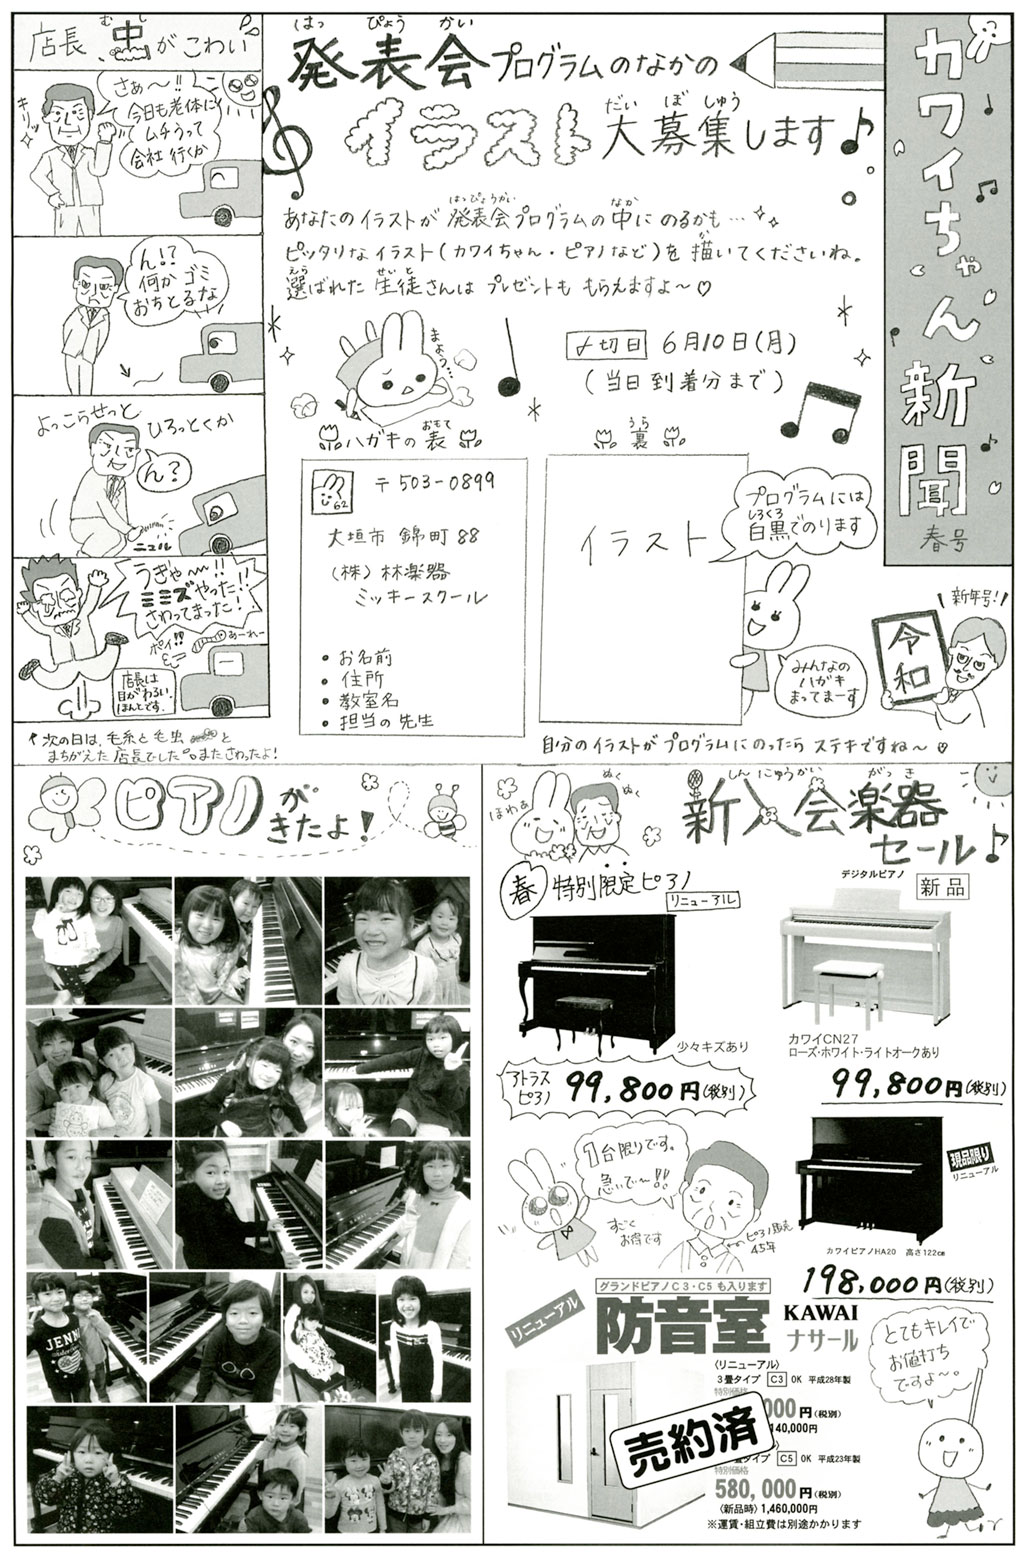 カワイちゃん新聞
春号
発表会プログラムのなかの
はっぴょうかい
イラスト大募集します♪
だいぼしゅう
あなたのイラストが発表会プログラムの中にのるかも…
はっぴょうかい
なか
ピッタリなイラスト(カワイちゃん・ピアノなど)を描いてくださいね。
か
選ばれた生徒さんはプレゼントももらえますよ〜♡
えら
せいと
まよう…
〆切日 6月10日(月)
(当日到着分まで)
ハガキの表
おもて
62
〒503-0899
大垣市 錦町88
(株)林楽器
ミッキースクール
・お名前
・住所
・教室名
・担当の先生
裏
うら
イラスト
プログラムには
しろくろ
白黒でのります
みんなの
ハガキ
まってまーす
新年号!
令和
自分のイラストがプログラムにのったらステキですね〜♡
店長、虫がこわい
むし
さぁ〜!!
今日も老体に
ムチうって
会社行くか
キリッ
ん!?
何かゴミ
おちとるな
よっこらせっと
ひろっとくか
ん?
ニュル
うぎゃ〜!!
ミミズやった!!
さわってまった!
ポイ!!
あーれー
店長は
目がわるい。
ほんとです。
次の日は、毛糸と毛虫と
まちがえた店長でした。またさわったよ!
ピアノがきたよ!
ほわぁ
ぬく
ぬく
新入会楽器
しんにゅうかい
がっき
セール♪
春 特別限定ピアノ
リニューアル
少々キズあり
アトラス
ピアノ
99,800円(税別)
デジタルピアノ
新品
カワイCN27
ローズ・ホワイト・ライトオークあり
99,800円(税別)
1台限りです。
急いで〜!!
すごく
お得です
ピアノ販売
45年
現品限り
リニューアル
カワイピアノHA20 高さ122cm
198,000円(税別)
リニューアル
グランドピアノC3・C5も入ります
防音室
KAWAI
ナサール
〈リニューアル〉
3畳タイプ C3 OK 平成28年製
特別価格
000円(税別)
140,000円
売約済
タイプ C5 OK 平成23年製
特別価格
580,000円(税別)
〈新品時〉1,460,000円
※運賃・組立費は別途かかります
とてもキレイで
お値打ち
ですよ〜。
JENNI